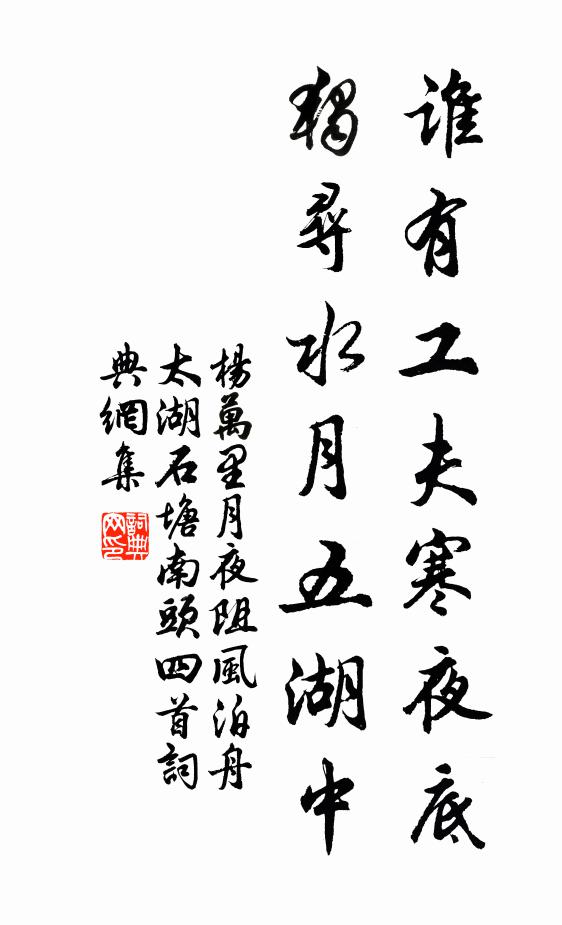 誰有工夫寒夜底
獨尋水月五湖中
楊萬里月夜阻風泊舟
太湖石塘南頭四首詞
典網集
詞典
网印